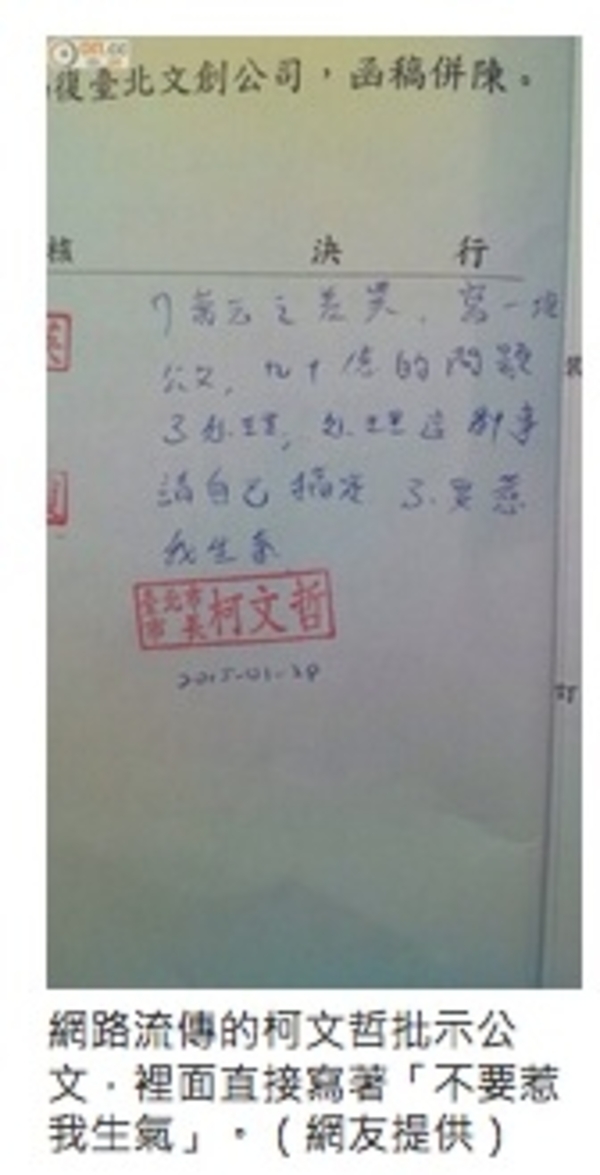 on.cc
復臺北文創公司，函稿併陳。
核 決 行
7萬元之差異，寫一堆
公文，九十億的問題
不處理，處理這鳥事
請自己搞定 不要惹
我生氣
臺北市
市長柯文哲
2015-01-28
裝
訂
網路流傳的柯文哲批示公
文，裡面直接寫著「不要惹
我生氣」。(網友提供)